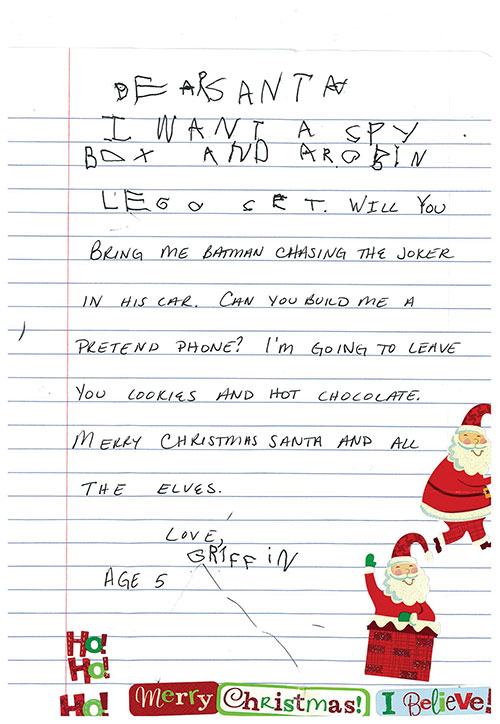 DEAR SANTA
I WANT A SPY
BOX AND A ROBIN
LEGO SET. WILL YOU
BRING ME BATMAN CHASING THE JOKER
IN HIS CAR. CAN YOU BUILD ME A
PRETEND PHONE? I'M GOING TO LEAVE
YOU COOKIES AND HOT CHOCOLATE.
MERRY CHRISTMAS SANTA AND ALL
THE ELVES.
LOVE,
GRIFFIN
AGE 5
Ho!
Ho!
Ho!
Merry Christmas! I Believe!